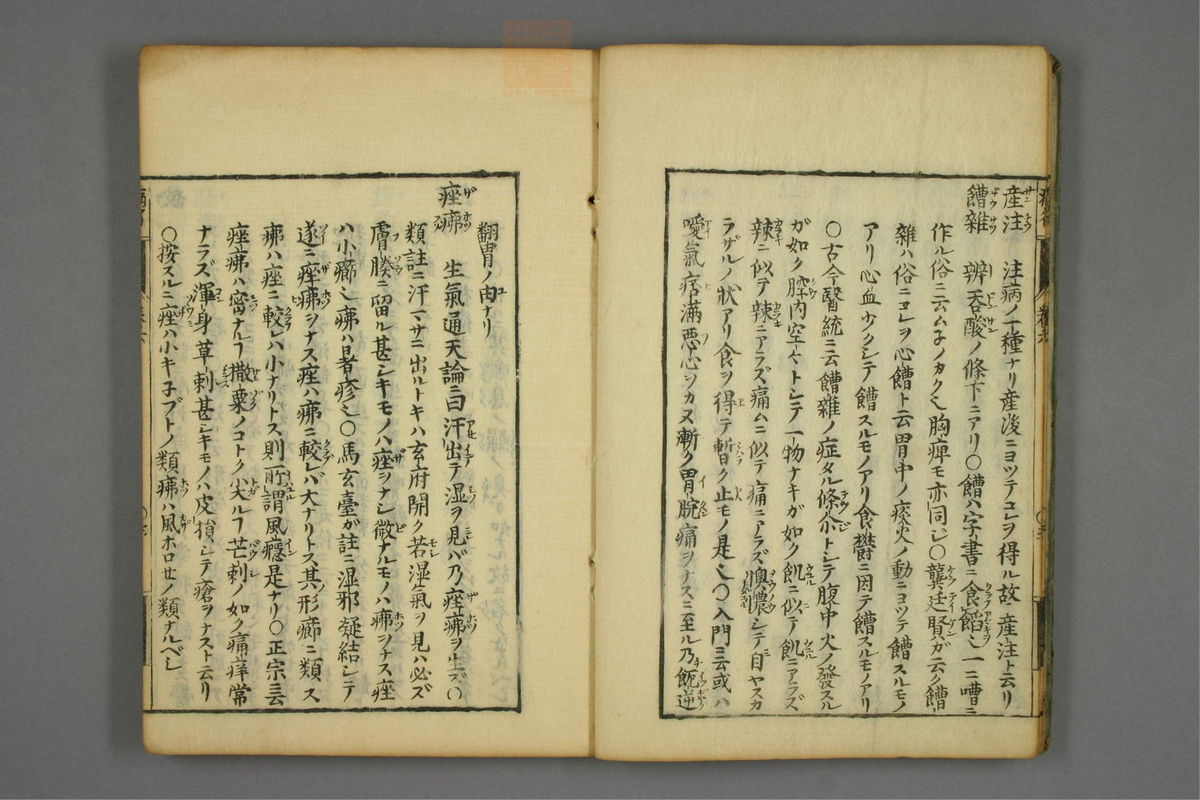 産注 注病ノ一種ナリ産後ニヨツテコレヲ得ル故ニ産注ト云リ
饐雜 辨呑酸ノ條下ニアリ〇饐ハ字書ニ食餡也一ニ嘈ニ
作ル俗ニ云ムネノカク也胸痺モ亦同ジ〇龔廷賢ガ云ク饐
雜ハ俗ニコレヲ心饐ト云胃中ノ痰火ノ動ニヨツテ饐スルモノ
アリ心血少クシテ饐スルモノアリ食欝ニ因テ饐スルモノアリ
〇古今醫統ニ云饐雜ノ症タル條介トシテ腹中火ノ發スル
ガ如ク腔内空々トシテ一物ナキガ如ク飢ニ似テ飢ニアラズ
辣ニ似テ辣ニアラズ痛ムニ似テ痛ニアラズ懊憹シテ自ヤスカ
ラザルノ狀アリ食ヲ得テ暫ク止モノ是也〇入門ニ云或ハ
噯氣痞滿悪心ヲカヌ漸ク胃脘痛ヲナスニ至ル乃飥逆
翻胃ノ由ナリ
痤疿 生氣通天論ニ曰汗出テ湿ヲ見バ乃痤疿ヲ生ズ〇
類註ニ汗マサニ出ルトキハ玄府開ク若湿氣ヲ見ハ必ズ
膚腠ニ留ル甚シキモノハ痤ヲナシ微ナルモノハ疿ヲナス痤
ハ小癤也疿ハ暑疹也〇馬玄臺ガ註ニ湿邪凝結シテ
遂ニ痤疿ヲナス痤ハ疿ニ較レバ大ナリトス其形癤ニ類ス
疿ハ痤ニ較レハ小ナリトス則所謂風癮是ナリ〇正宗ニ云
痤疿ハ密ナルヿ撒粟ノコトク尖ルヿ芒刺ノ如ク痛痒常
ナラズ渾身草刺甚シキモノハ皮損シテ瘡ヲナスト云リ
〇按スルニ痤ハ小キネブトノ類疿ハ風ホロセノ類ナルベシ